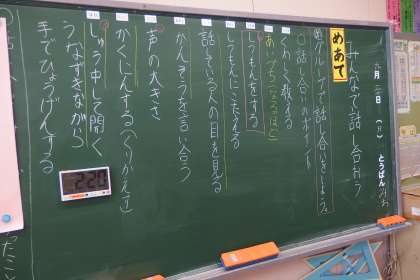 みんなで話し合おう
めあて
グループで話し合いをしよう。
○話し合いのポイント
くわしく教える
あいづち(なるほど)
しつもんをする
しつもんにこたえる
話している人の目を見る
かんそうを言い合う
声の大きさ
かくにんする(くりかえす)
しゅう中して聞く
うなずきながら
手でひょうげんする